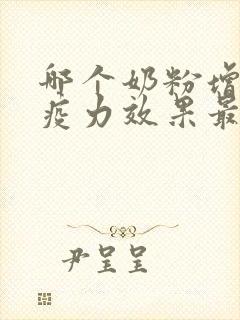 哪个奶粉增
疫力效果最
尹呈呈